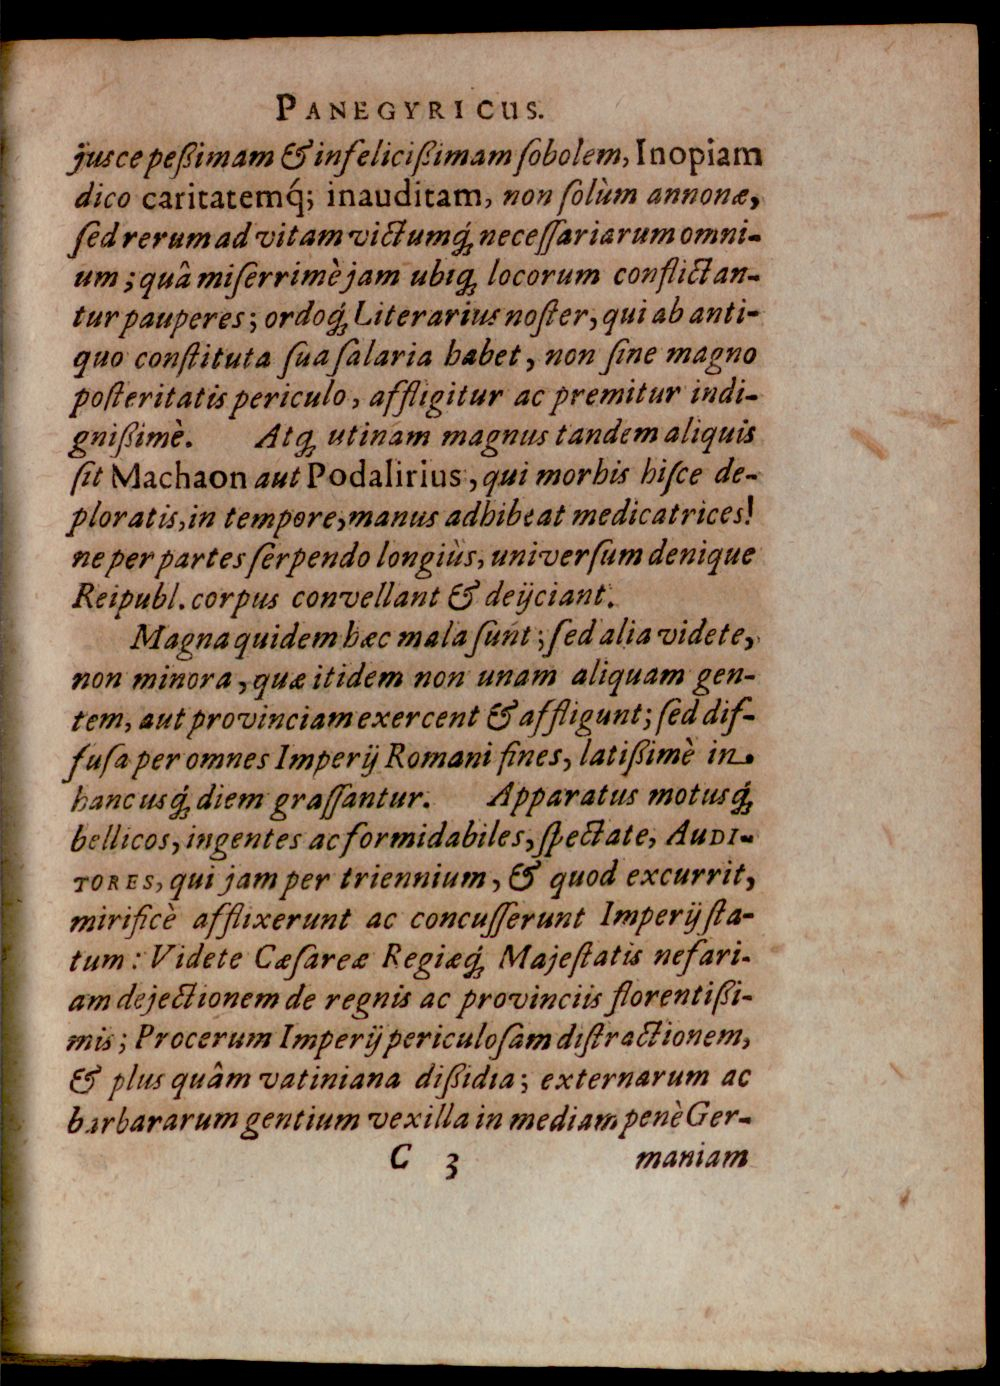 PANEGYRICUS.
jusce peßimam & infelicißimam ſobolem, Inopiam
dico caritatemq́; inauditam, non ſolùm annonæ,
ſed rerum ad vitam victumq́; neceſſariarum omni-
um; quâ miſerrimè jam ubiq; locorum conflictan-
tur pauperes; ordoq́; Literarius noſter, qui ab anti-
quo conſtituta ſua ſalaria habet, non ſine magno
poſteritatis periculo, affligitur ac premitur indi-
gnißimè. Atq; utinam magnus tandem aliquis
ſit Machaon aut Podalirius, qui morbis hiſce de-
ploratis, in tempore, manus adhibeat medicatrices!
ne per partes ſerpendo longiùs, univerſum denique
Reipubl. corpus convellant & deijciant.
Magna quidem hæc mala ſunt; ſed alia videte,
non minora, quæ itidem non unam aliquam gen-
tem, aut provinciam exercent & affligunt; ſed dif-
fuſa per omnes Imperij Romani fines, latißimè in
hanc usq́; diem graſſantur. Apparatus motusq́;
bellicos, ingentes ac formidabiles, ſpectate, AUDI-
TORES, qui jam per triennium, & quod excurrit,
mirificè afflixerunt ac concuſſerunt Imperij ſta-
tum: Videte Cæſareæ Regiæq́; Majeſtatis nefari-
am dejectionem de regnis ac provinciis florentißi-
mis; Procerum Imperij periculoſam diſtractionem,
& plus quâm vatiniana dißidia; externarum ac
barbararum gentium vexilla in mediam penè Ger-
C 3 maniam